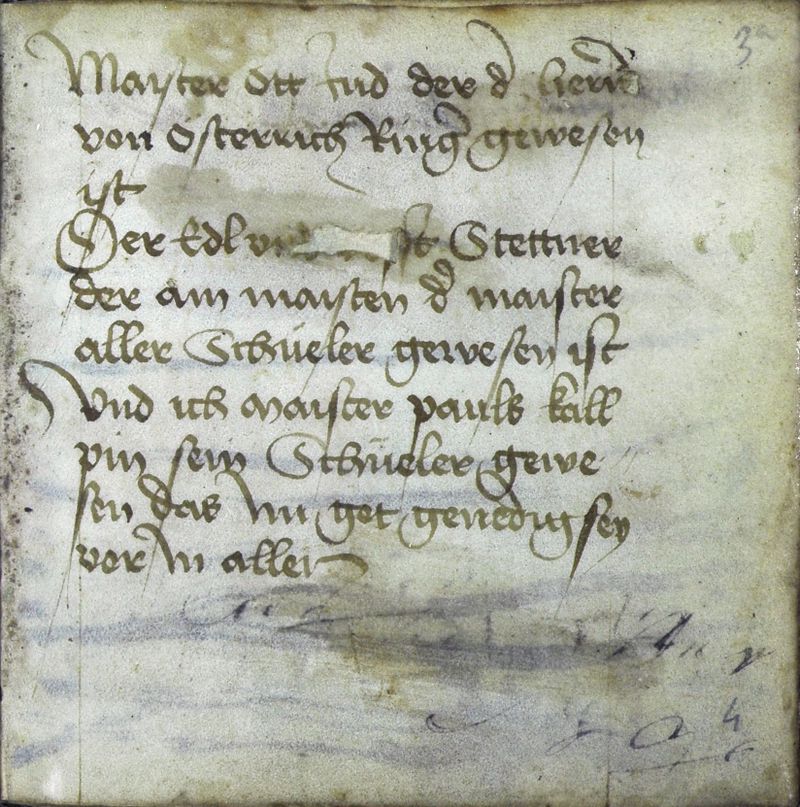 3a
Maister Ott Jud der d' herrn
von Österrich Ring' gewesen
ist
Der Edl Stettner
der am maisten d' maister
aller Schüeler gewesen ist
Vnd ich maister pauls kall
pin sein Schüeler gewe
sen das Im got genedig sey
vor In allen